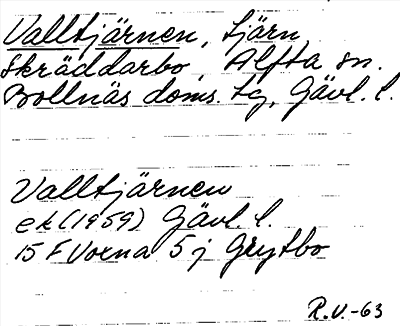 Valltjärnen, tjärn,
Skräddarbo, Alfta sn.
Bollnäs doms. tg, Gävl. l.
Valltjärnen
ek (1959) Gävl. l.
15 F Voxna 5 j Grytbo
R.V.-63